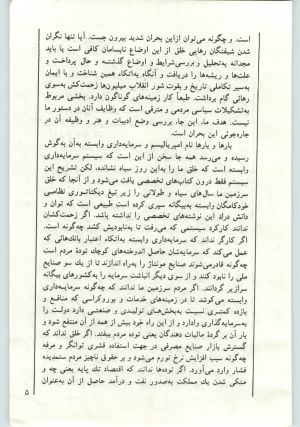 است. و چگونه می‌توان از این بحران شدید بیرون جست. آیا تنها نگران
شدن شیفتگان رهایی خلق از این اوضاع نابسامان کافی است یا باید
مجدانه به‌تحلیل و بررسی شرایط و اوضاع گذشته و حال پرداخت و
علت‌ها و ریشه‌ها را دریافت و آنگاه به‌اتکاء همین شناخت و با ایمان
به‌سیر تکاملی تاریخ و بقوت شور انقلاب میلیون‌ها زحمت‌کش به‌سوی
رهائی گام برداشت. طبعاً کار زمینه‌های گوناگون دارد. بخشی مربوط
به‌تشکیلات سیاسی مردمی و مترقی است که وظایف آنان در دستور ما
نیست. هدف ما، این جا، بررسی وضع ادبیات و هنر و وظیفه آن در
چاره‌جوئی این بحران است.
بارها و بارها نام امپریالیسم و سرمایه‌داری وابسته به‌آن به‌گوش
رسیده و می‌رسد همه جا سخن از این است که سیستم سرمایه‌داری
وابسته است که خلق ما را به‌این روز سیاه نشانده، لکن تشریح این
سیستم فقط درون کتاب‌های تخصصی یافت می‌شود و از آنجا که خلق
سرزمین ما سال‌های سیاه و طولانی را زیر تیغ دیکتاتوری نظامی
خودکامه‌ی وابسته به‌بیگانه سپری کرده است طبیعی است که توان و
دانش درك این نوشته‌های تخصصی را نداشته باشد. اگر زحمت‌کشان
ندانند کارکرد سیستمی که می‌رفت تا به‌نابودیش کشد چگونه است.
اگر کارگر نداند که سرمایه‌داری وابسته به‌اتکاء اعتبار بانك‌هائی که
عمل می‌کند که سرمایه‌شان حاصل اندوخته‌های کوچك توده مردم است
چگونه قادر می‌شوند صنایع مونتاژ را به‌راه اندازند تا از یك سو صنایع
ملی را نابود کنند و از سوی دیگر انباشت سرمایه را به‌کشورهای بیگانه
سرازیر گردانند. اگر مردم سرزمین ما ندانند که چگونه سرمایه‌داری
وابسته می‌کوشد تا در زمینه‌های خدمات و بوروکراسی که منافع و
بازده کمتری نسبت به‌بخش‌های تولیدی و صنعتی دارد دولت را
به‌سرمایه‌گذاری وادارد و از این راه خود بیش از همه از آن منتفع شود و
بار آن بر گردۀ مالیات دهندگان یعنی توده مردم بیفتد. اگر خلق نداند که
گسترش بازار صنایع مصرفی در جهت استفاده قشری توانگر و مرفه
چگونه سبب افزایش نرخ تورم می‌شود و بر حقوق ناچیز مردم ستمدیده
فشار وارد می‌آورد. اگر توده‌ها ندانند که اقتصاد تك پایه یعنی چه و
متکی شدن یك مملکت به‌صدور نفت و درآمد حاصل از آن به‌عنوان
۵